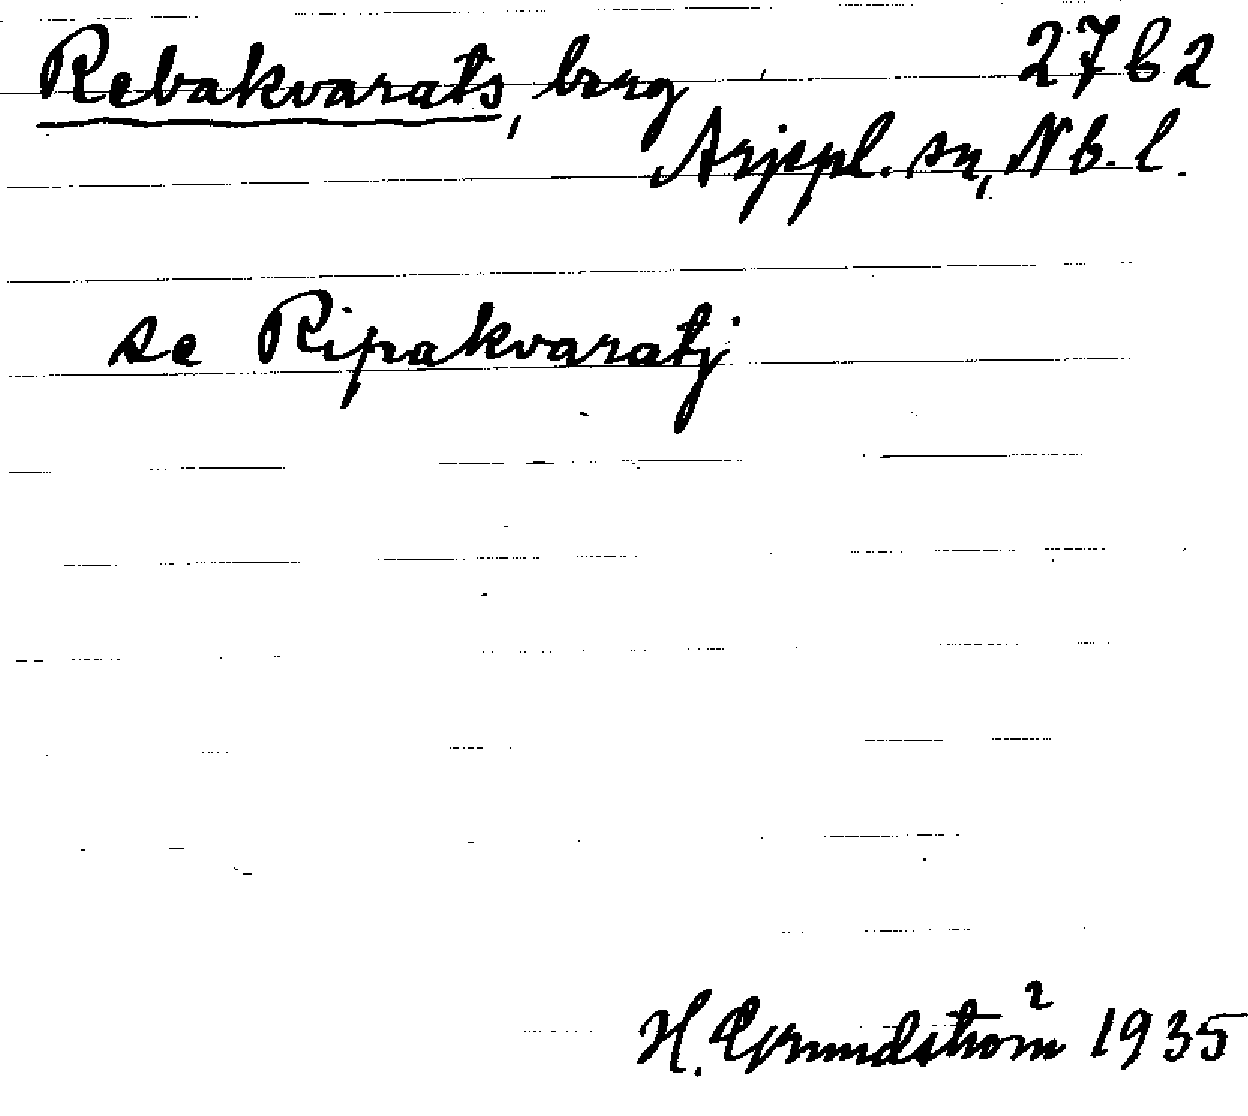 Rebakvarats, berg 27 b 2
Arjepl. sn, Nb. l.
se Ripakvaratj
H. Grundström 1935